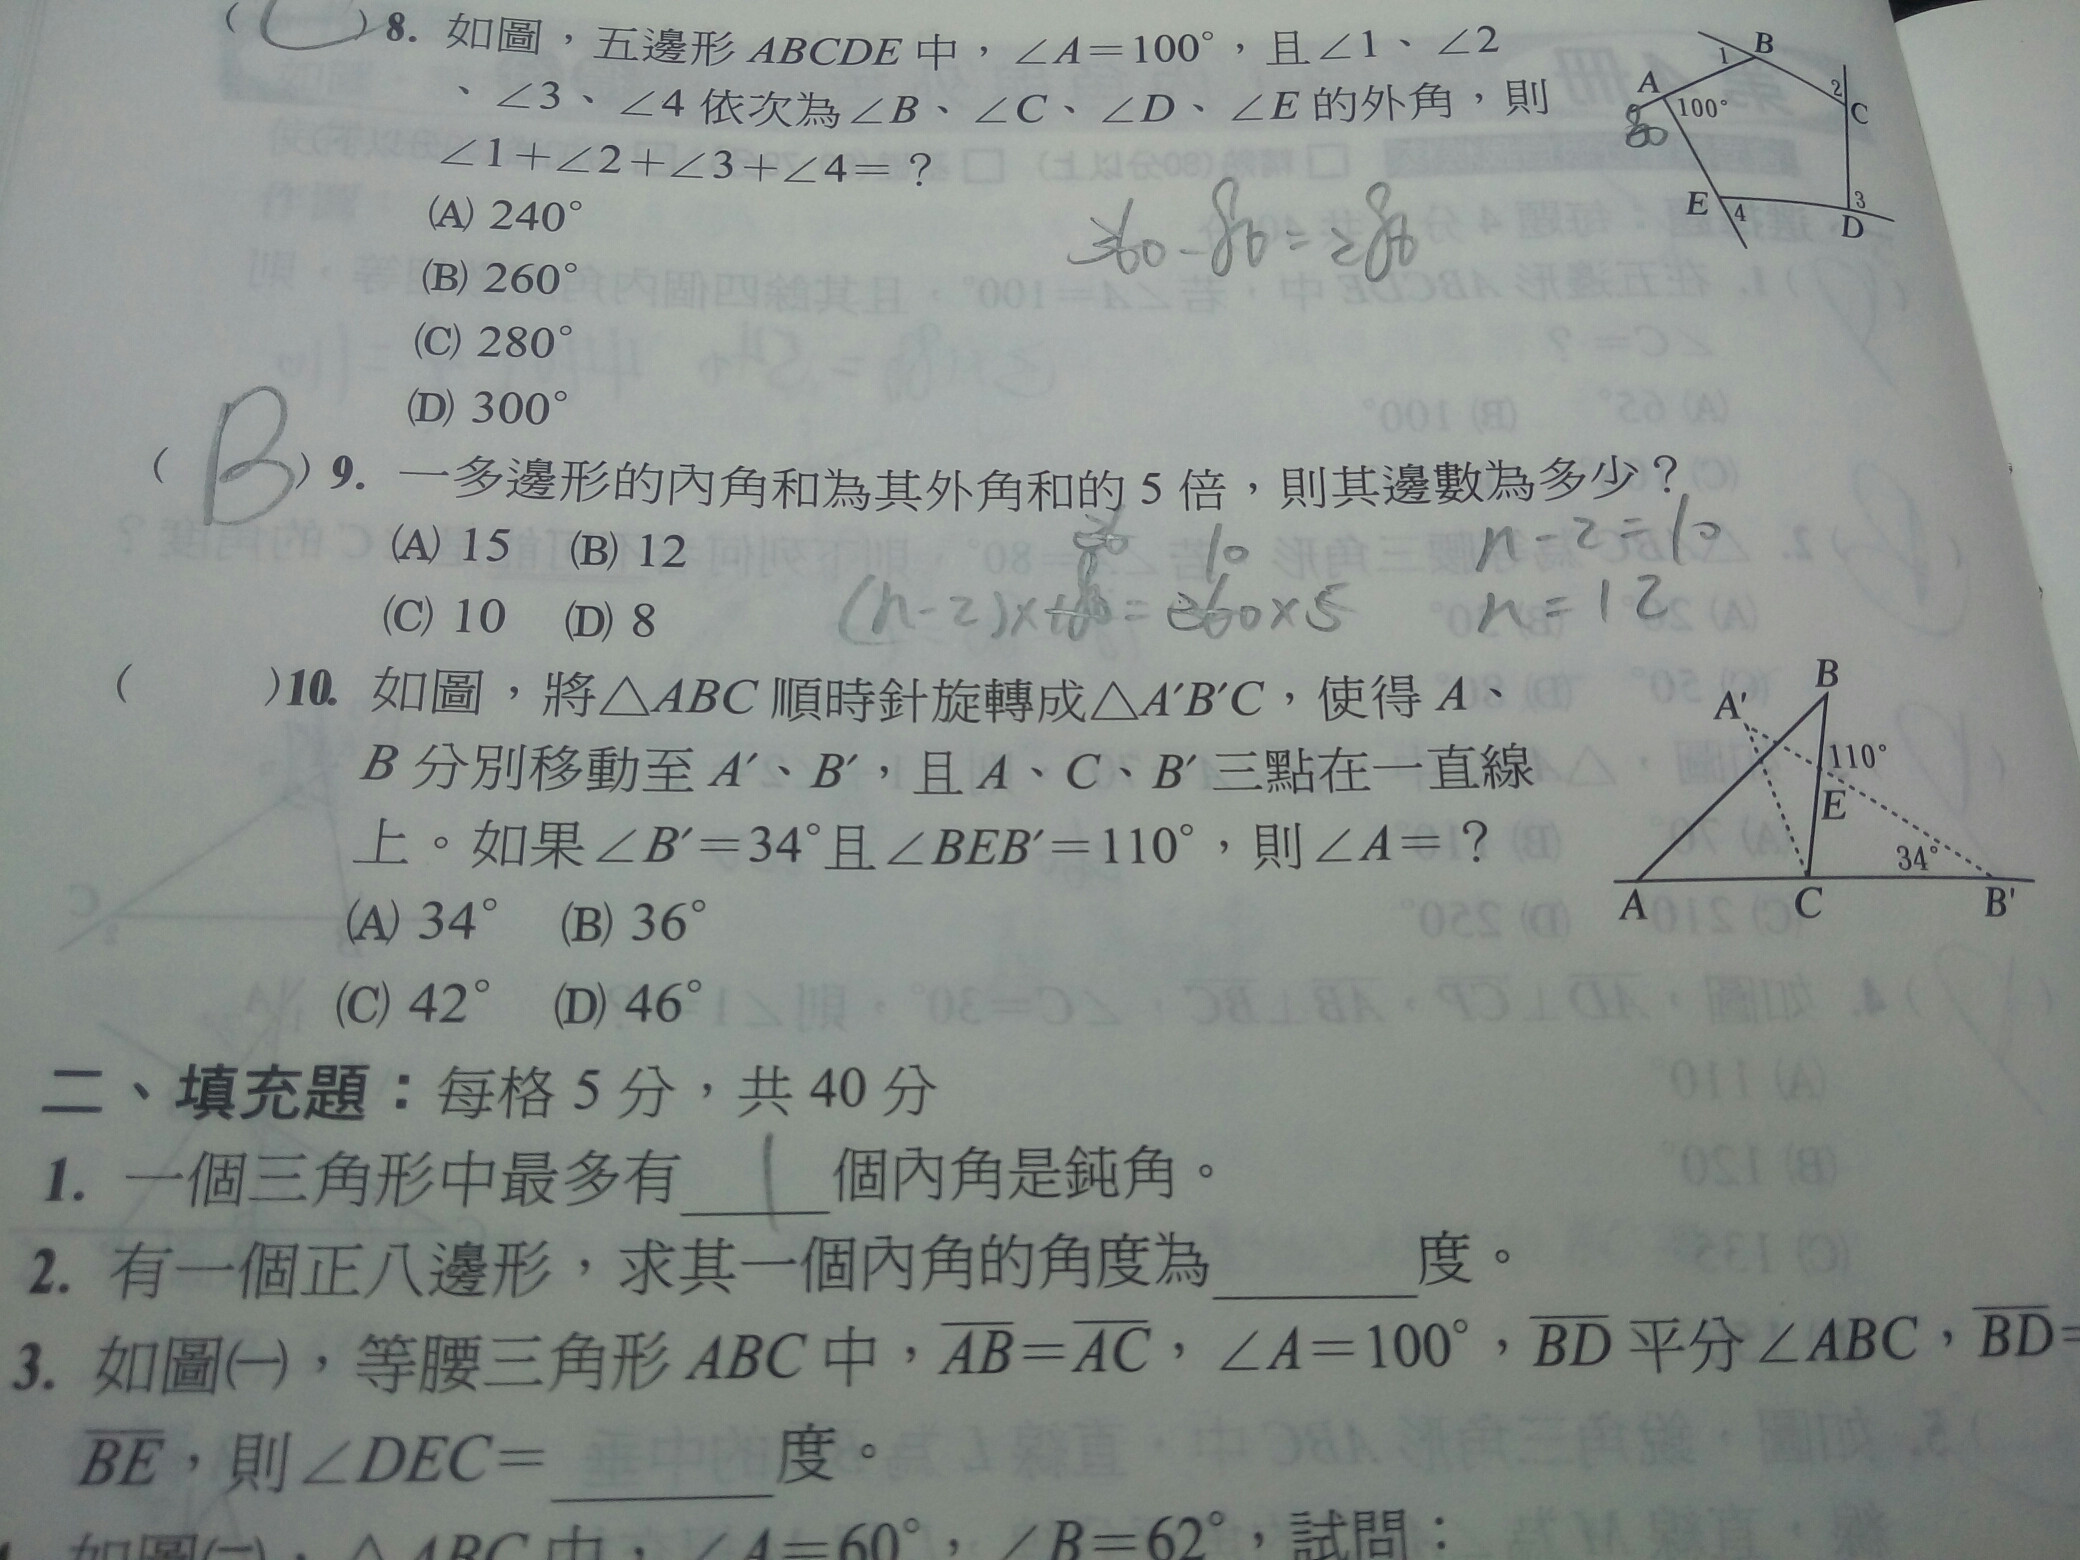 (C)8. 如圖，五邊形ABCDE中，∠A=100°，且∠1、∠2
、∠3、∠4依次為∠B、∠C、∠D、∠E的外角，則
∠1+∠2+∠3+∠4=？
(A) 240°
(B) 260°
(C) 280°
(D) 300°
A B C D E 1 2 3 4 100°
80
360-80=280
(B)9. 一多邊形的內角和為其外角和的5倍，則其邊數為多少？
(A) 15 (B) 12
(C) 10 (D) 8
10
(n-2)×180=360×5
n-2=10
n=12
( )10. 如圖，將△ABC順時針旋轉成△A′B′C，使得A、
B分別移動至A′、B′，且A、C、B′三點在一直線
上。如果∠B′=34°且∠BEB′=110°，則∠A=？
(A) 34° (B) 36°
(C) 42° (D) 46°
B
A'
110°
E
34°
A C B'
二、填充題：每格5分，共40分
1. 一個三角形中最多有 1 個內角是鈍角。
2. 有一個正八邊形，求其一個內角的角度為______度。
3. 如圖㈠，等腰三角形ABC中，AB=AC，∠A=100°，BD平分∠ABC，BD=
BE，則∠DEC=______度。
如圖㈡，△ABC中，∠A=60°，∠B=62°，試問：